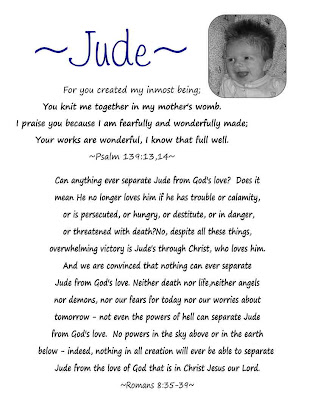 ~Jude~
For you created my inmost being;
You knit me together in my mother's womb.
I praise you because I am fearfully and wonderfully made;
Your works are wonderful, I know that full well.
~Psalm 139:13,14~
Can anything ever separate Jude from God's love? Does it
mean He no longer loves him if he has trouble or calamity,
or is persecuted, or hungry, or destitute, or in danger,
or threatened with death?No, despite all these things,
overwhelming victory is Jude's through Christ, who loves him.
And we are convinced that nothing can ever separate
Jude from God's love. Neither death nor life,neither angels
nor demons, nor our fears for today nor our worries about
tomorrow - not even the powers of hell can separate Jude
from God's love. No powers in the sky above or in the earth
below - indeed, nothing in all creation will ever be able to separate
Jude from the love of God that is in Christ Jesus our Lord.
~Romans 8:35-39~